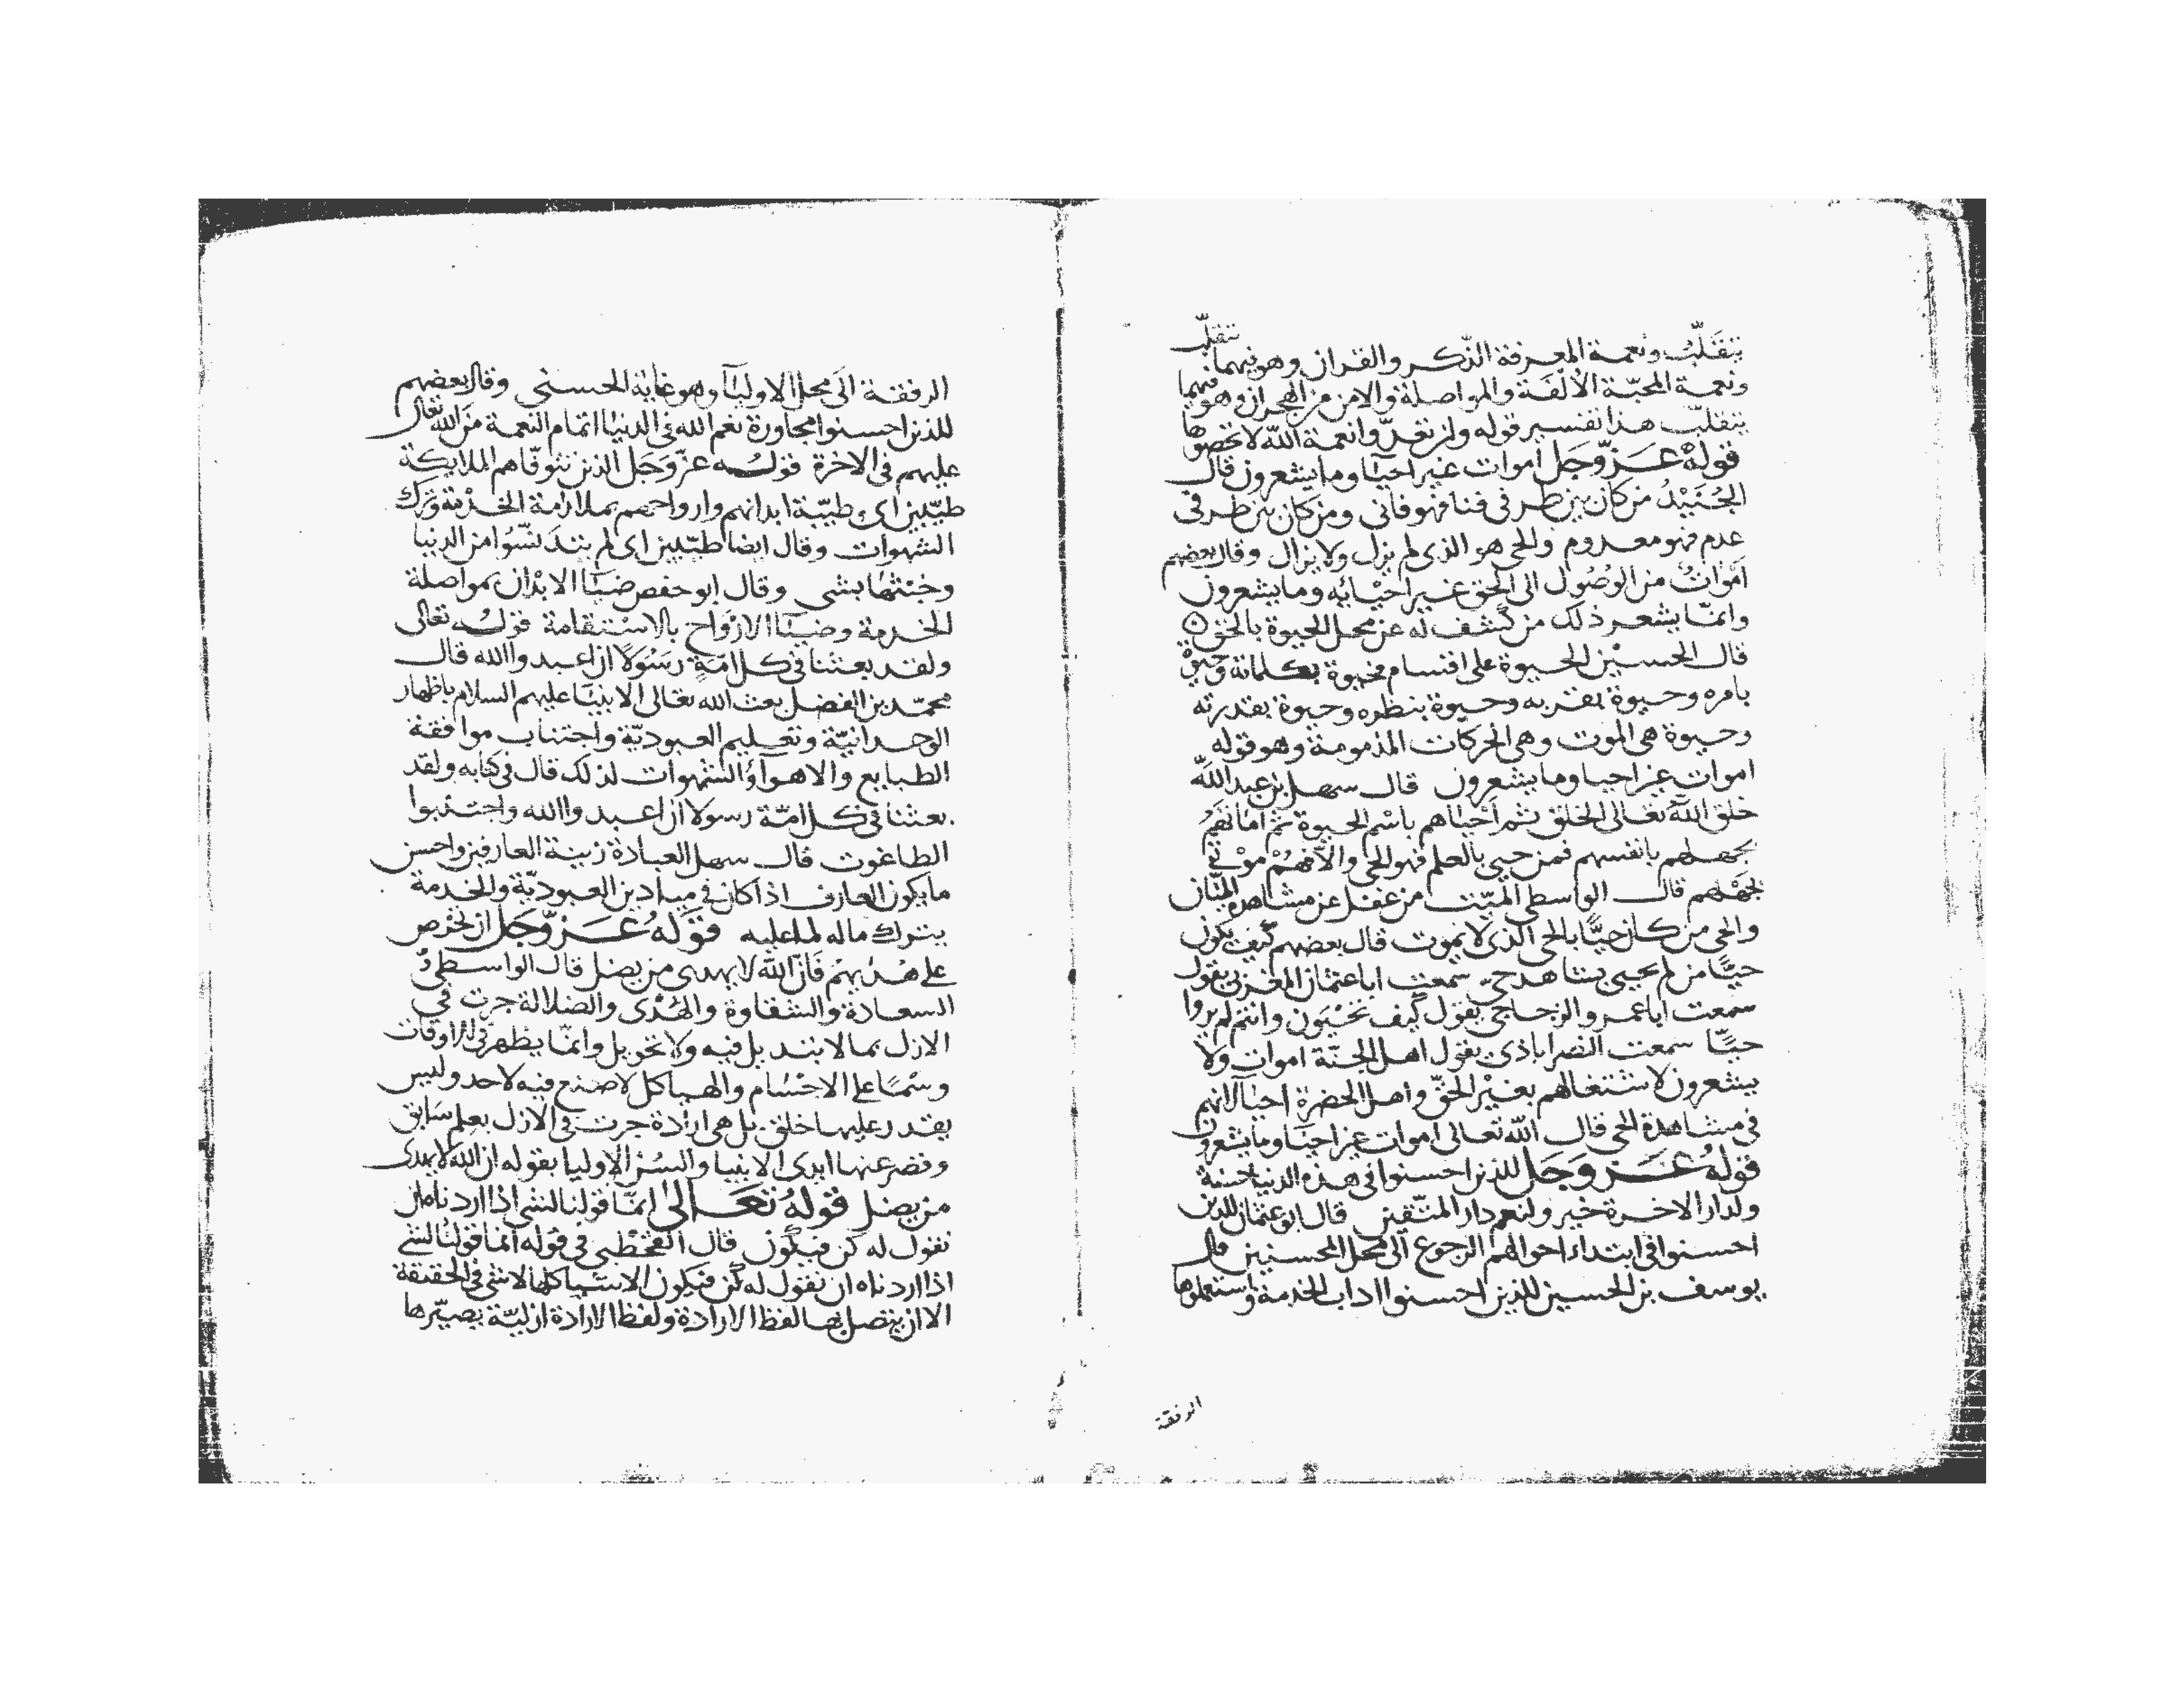 يتقلّب ونعمة المعرفة الذّكر والقران وهو فيهما يتقلّب
ونعمة المحبّة الالفة والمواصلة والامن من الهجران وهو فيهما
يتقلّب هذا تفسير قوله وان تعدّوا نعمة الله لا تحصوها
قوله عزّ وجل اموات غير احيا وما يشعرون قال
الجُنَيْدُ من كان بين طرفي فنا فهو فاني ومن كان بين طرفي
عدم فهو معدوم والحي هو الذي لم يزل ولا يزال وقال بعضهم
اموات من الوُصُول الى الحق غير احيائه وما يشعرون
وانمّا يشعر ذلك من كُشف له عن محل الحيوة بالحق ه
قال الحسين الحيوة على اقسام فحيوة بكلماته وحيوة
بامره وحيوة بقربه وحيوة بنظره وحيوة بقدرته
وحيوة هي الموت وهي الحركات المذمومة وهو قوله
اموات غير احيا وما يشعرون قال سهل بن عبد الله
خلق الله تعالى الخلق ثم احياهم باسْم الحيوة ثم اماتهم
بجهلهم بانفسهم فمن حيي بالعلم فهو الحي والّا فهُمْ موْتى
بجَهْلهم قال الواسطي الميّت من غفل عن مشاهدة المنّان
والحي من كان حيًّا بالحي الذي لا يموت قال بعضهم كيف يكون
حيًّا من لم يحيى بشاهد حيّ سمعت ابا عثمان المغربي يقول
سمعت ابا عمرو الزجاجي يقول كيف تحْيَون وانتم لم تروا
حيًّا سمعت النصراباذي يقول اهل الجنّة اموات ولا
يشعرون لاشتغالهم بغيْر الحقّ واهل الحضرة احيا لانهم
في مشاهدة الحي قال الله تعالى اموات غير احيا وما يشعرون
قولهُ عَزّ وَجَل للذين احسنوا في هذه الدنيا حسنة
ولدار الاخرة خير ولنعم دار المتّقين قال ابو عثمان للذين
احسنوا في ابتداء احوالهم الرجوع الى محل المحسنين قال
يوسف بن الحسين للذين احسنوا اداب الخدمة واستعملوها
الرفقة
الرفقة الى محل الاوليآ وهو غاية الحسنى وقال بعضهم
للذين احسنوا مجاورة نعم الله في الدنيا اتمام النعمة من الله تعالى
عليهم في الاخرة قوله عزّ وَجَل الذين تتوفّاهم الملايكة
طيّبين اى طيّبة ابدانهم وارواحهم بملازمة الخدْمة وترك
الشهوات وقال ايضا طيّبين اى لم يتدَنّسُوا من الدنيا
وخبثها بشي وقال ابو حفص ضيَا الابْدان بمواصلة
الخدمة وضيَا الارْوَاح بالاسْتقامة قوله تعالى
ولقد بعثنا في كل امّةٍ رَسُولًا ان اعبدوا الله قال
محمّد بن الفضل بعث الله تعالى الانبيَا عليهم السلام باظهار
الوحدانيّة وتعليم العبوديّة واجتناب موافقة
الطبايع والاهوآ والشهوات لذلك قال في كتابه ولقد
بعثنا في كل امّة رسولا ان اعبدوا الله واجتنبوا
الطاغوت قال سهل العبادة زينة العارفين واحسن
ما يكون العارف اذا كان في ميادين العبوديّة والخدمة
يترك ماله لما عليه قوَلهُ عَزّ وَجَل ان تحْرص
على هُدٰيهمْ فَانّ الله لا يهدى من يضل قال الواسطي
السعادة والشقاوة والهُدْى والضلالة جرت في
الازل بما لا تبديل فيه ولا تحويل وانمّا يظهر في الاوقات
وسْمًا على الاجْسَام والهياكل لا صنع فيه لاحد وليس
يقدر عليها خلق بل هي ارادة جرت في الازل بعلم سَابق
وقصر عنها ايدى الانبيا والسُن الاوليا بقوله ان الله لا يهدى
من يضل قولهُ تعَالىٰ انمّا قولنا لشي اذا اردناه ان
نقول له كن فيكون قال القحْطبي في قوله انما قولنا لشي
اذا اردناه ان نقول له كُن فيكون الاشيا كلها لا شي في الحقيقة
الا ان يتصل بها لفظ الارادة ولفظ الارادة ازليّة يصيّرها